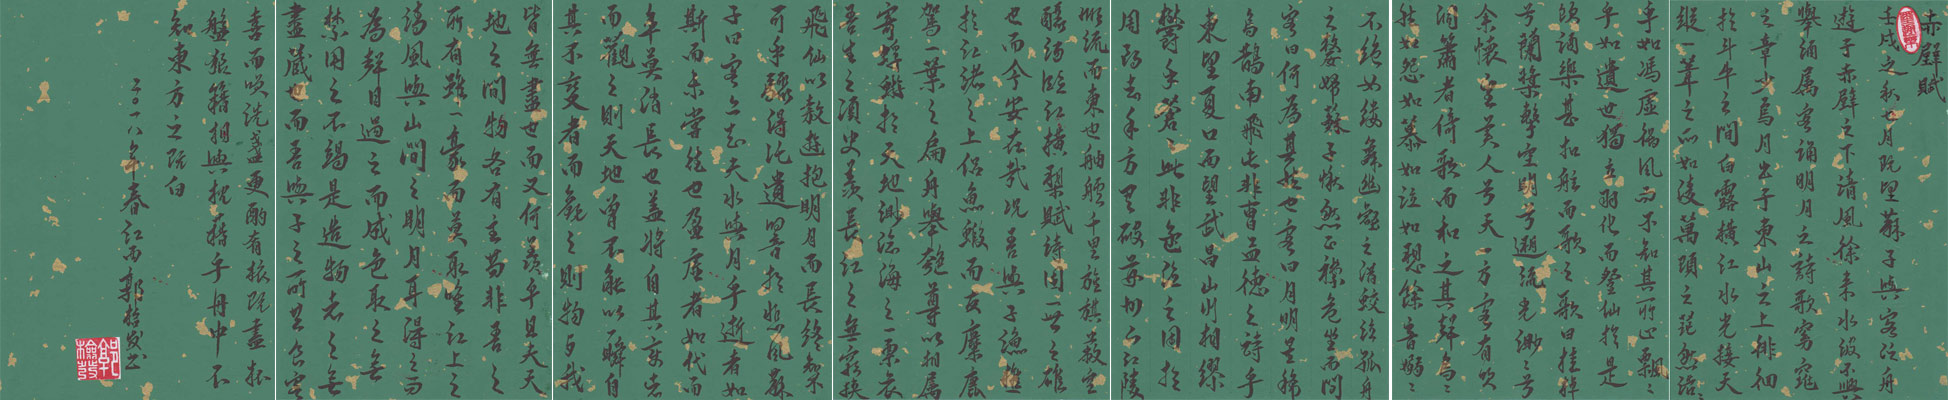 赤壁賦
壬戌之秋七月既望蘇子與客泛舟
遊于赤壁之下清風徐來水波不興
舉酒屬客誦明月之詩歌窈窕
之章少焉月出于東山之上徘徊
於斗牛之間白露橫江水光接天
縱一葦之所如凌萬頃之茫然浩浩
乎如馮虛御風而不知其所止飄飄
乎如遺世獨立羽化而登仙於是
飲酒樂甚扣舷而歌之歌曰桂棹
兮蘭槳擊空明兮遡流光渺渺兮
余懷望美人兮天一方客有吹
洞簫者倚歌而和之其聲嗚嗚
然如怨如慕如泣如愬餘音嫋嫋
不絕如縷舞幽壑之潛蛟泣孤舟
之嫠婦蘇子愀然正襟危坐而問
客曰何為其然也客曰月明星稀
烏鵲南飛此非曹孟德之詩乎
東望夏口西望武昌山川相繆
鬱乎蒼蒼此非孟德之困於
周郎者乎方其破荊州下江陵
順流而東也舳艫千里旌旗蔽空
釃酒臨江橫槊賦詩固一世之雄
也而今安在哉況吾與子漁樵
於江渚之上侶魚蝦而友麋鹿
駕一葉之扁舟舉匏尊以相屬
寄蜉蝣於天地渺滄海之一粟哀
吾生之須臾羨長江之無窮挾
飛仙以遨遊抱明月而長終知不
可乎驟得託遺響於悲風蘇
子曰客亦知夫水與月乎逝者如
斯而未嘗往也盈虛者如代而
卒莫消長也蓋將自其變者
而觀之則天地曾不能以一瞬自
其不變者而觀之則物與我
皆無盡也而又何羨乎且夫天
地之間物各有主苟非吾之
所有雖一毫而莫取惟江上之
清風與山間之明月耳得之而
為聲目遇之而成色取之無
禁用之不竭是造物者之無
盡藏也而吾與子之所共食客
喜而笑洗盞更酌肴核既盡杯
盤狼籍相與枕藉乎舟中不
知東方之既白
二〇一八年春江西郭检发书
郭檢發